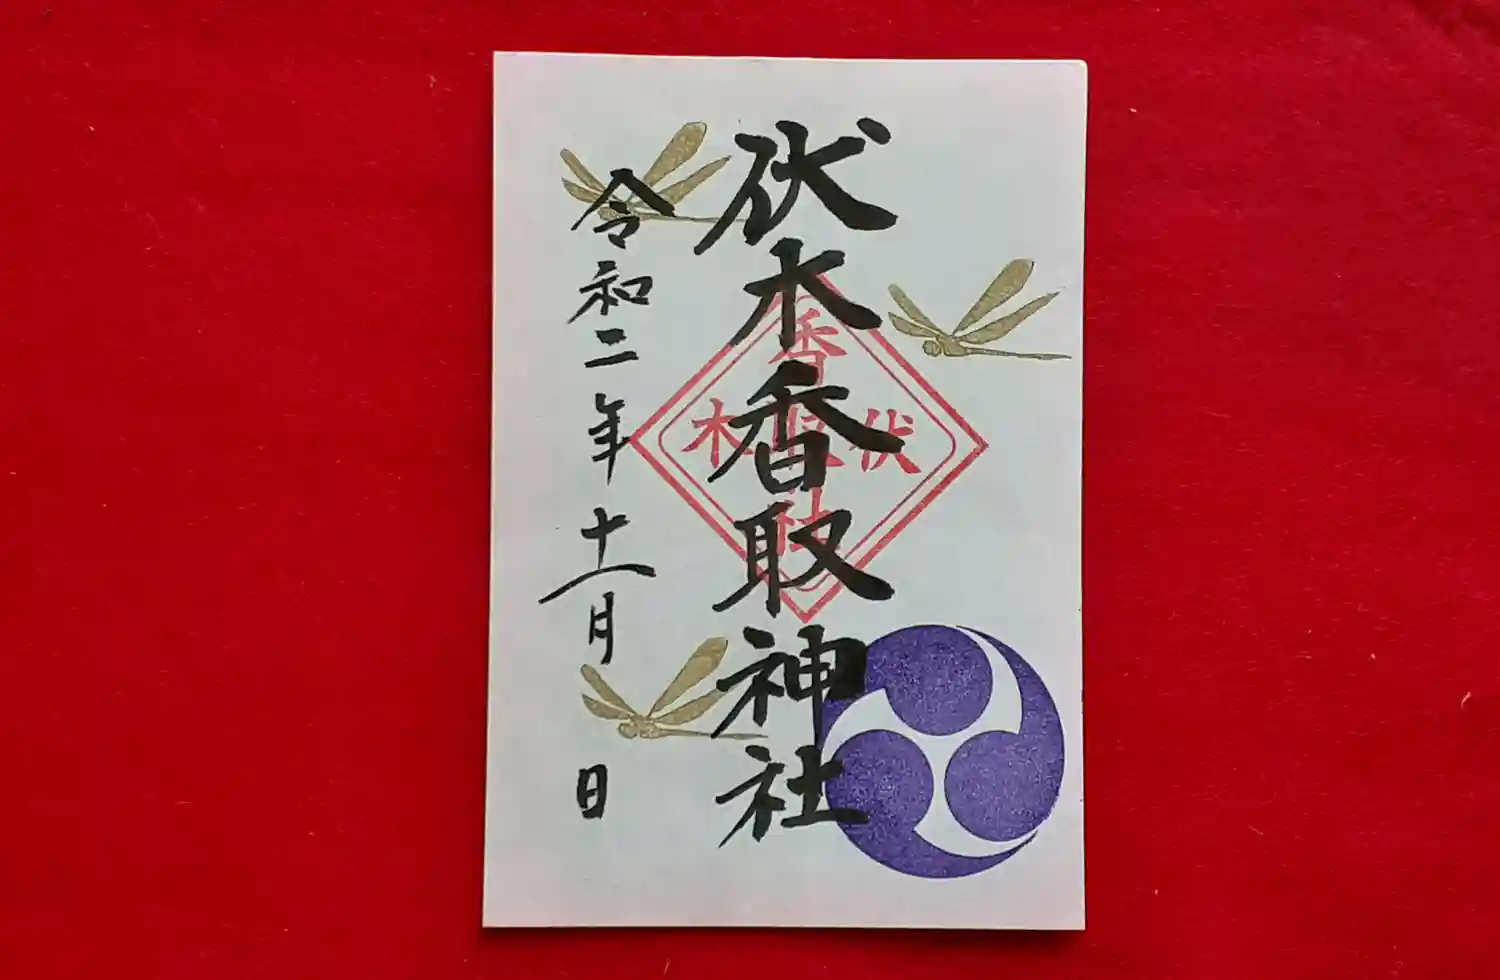 伏木香取神社
令和二年十一月 日
香
伏取木
社